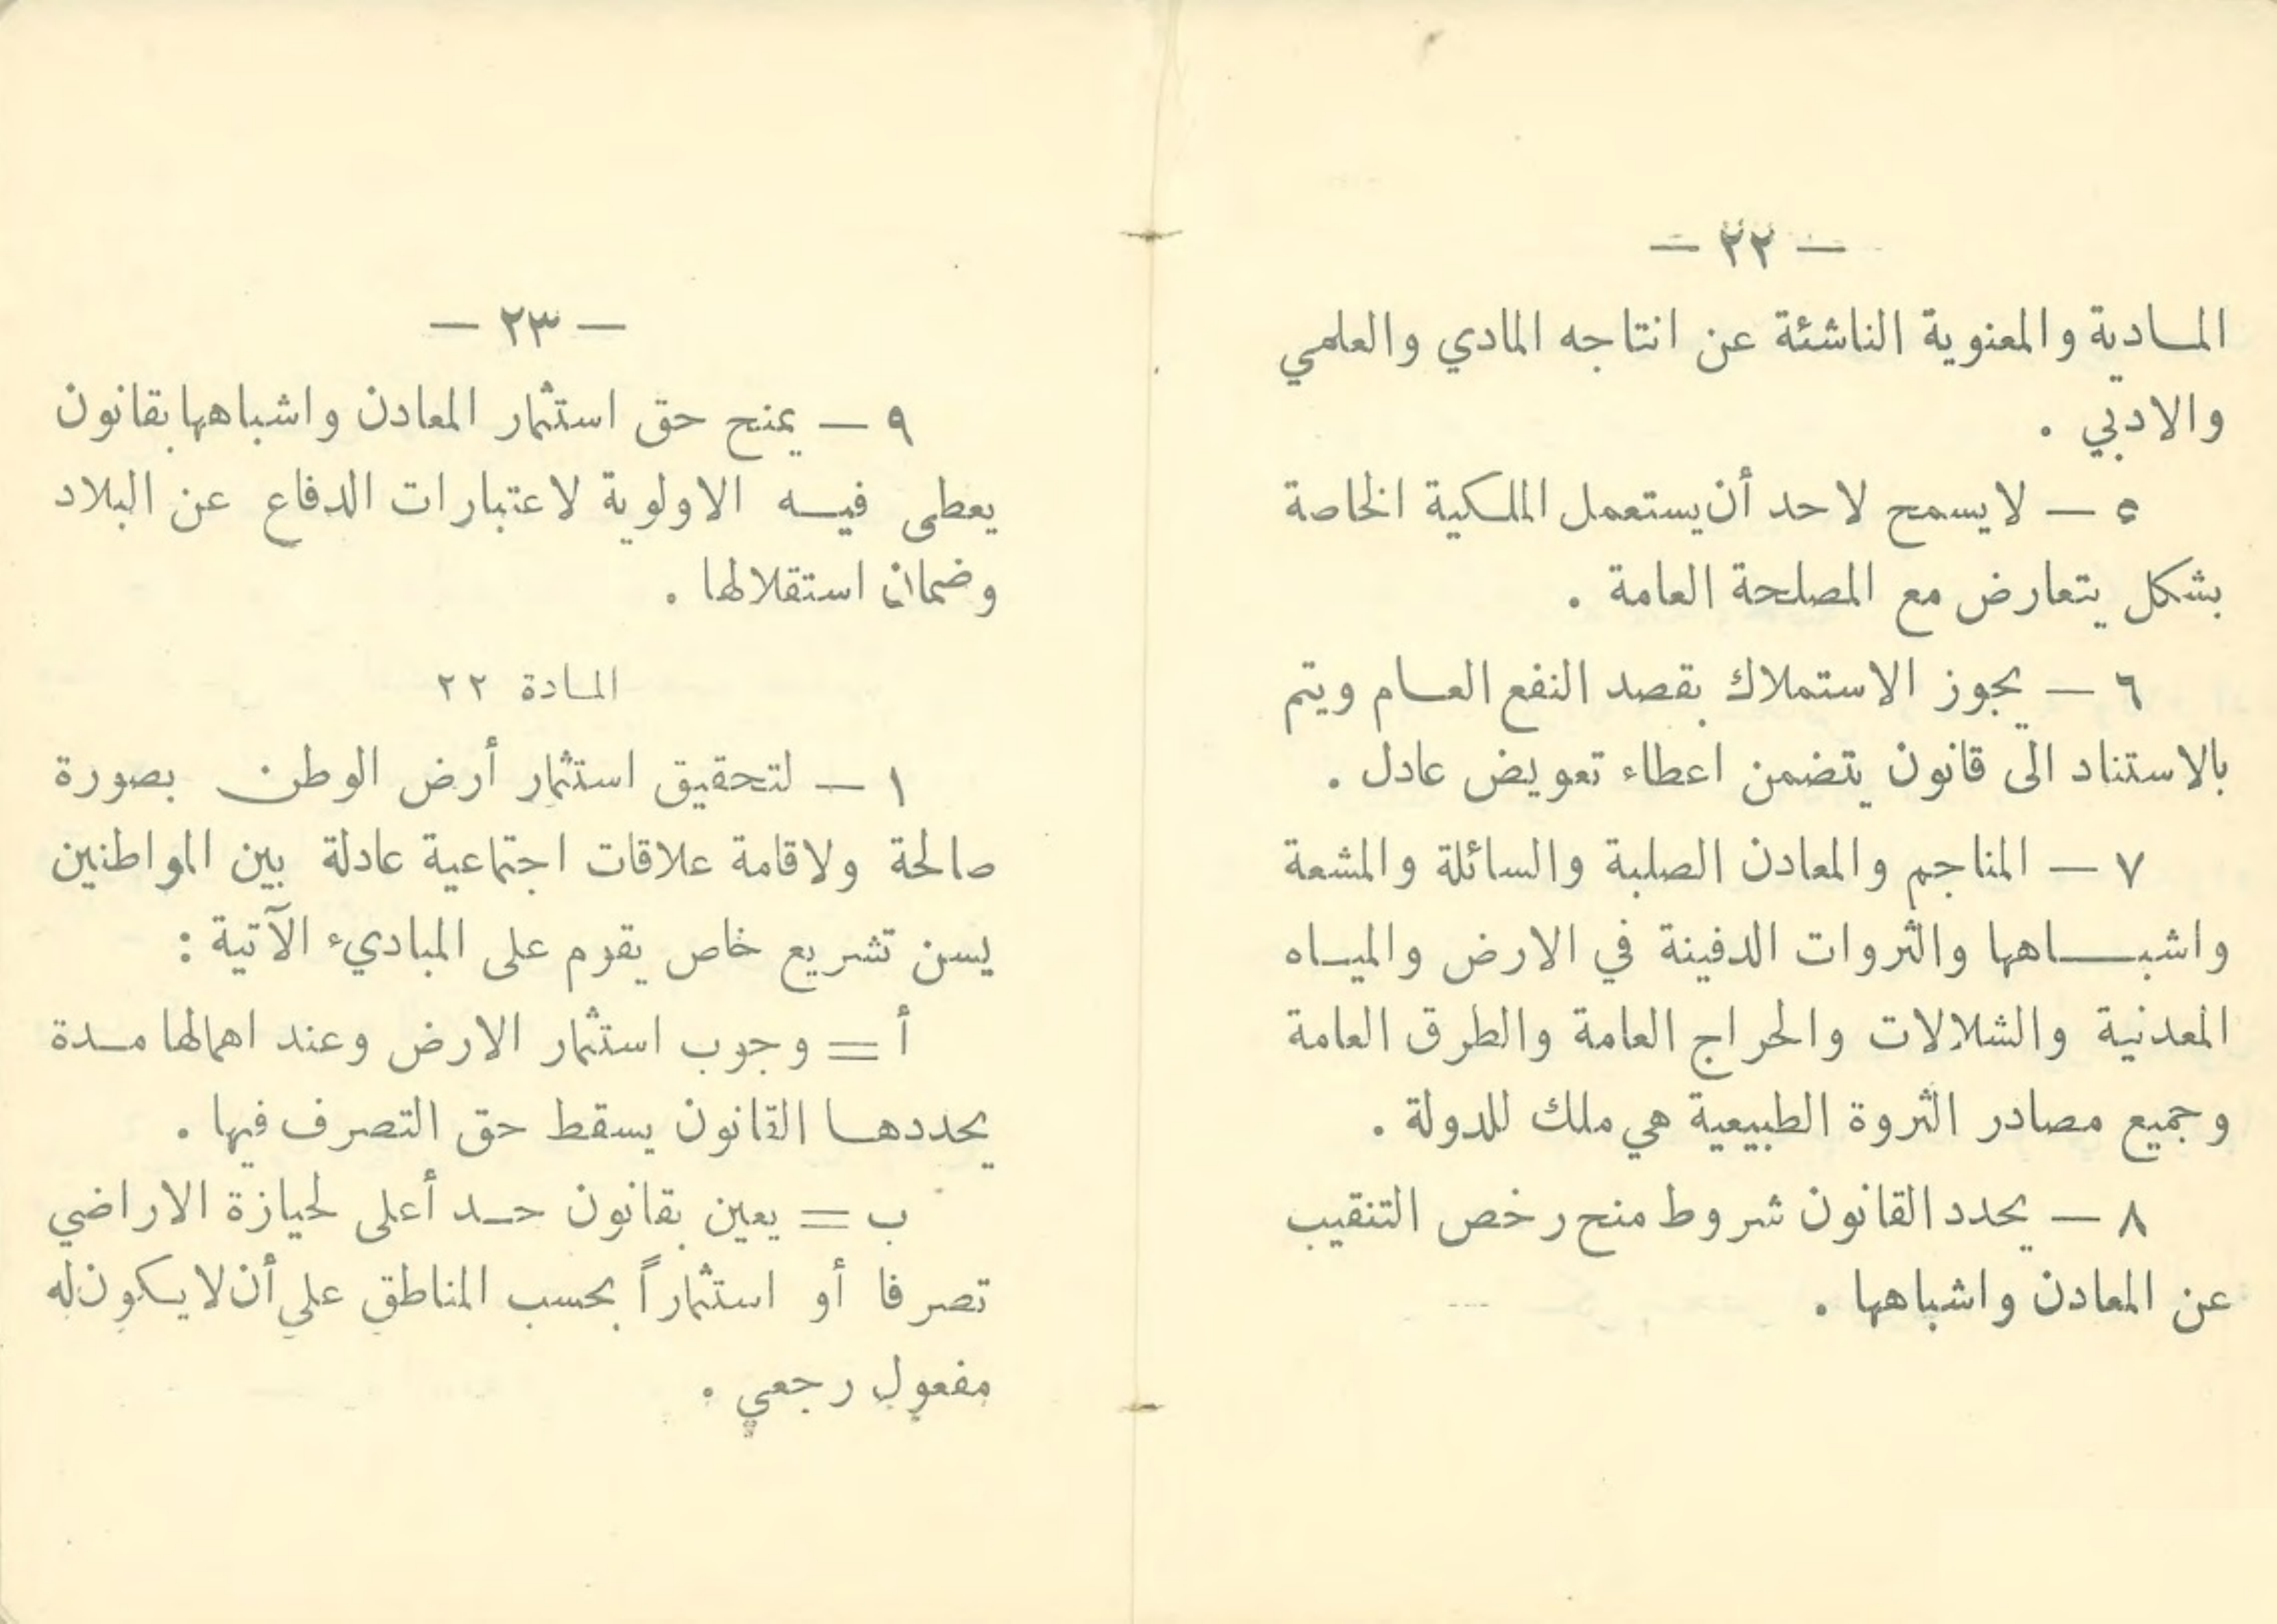 — ٢٢ —
المادية والمعنوية الناشئة عن انتاجه المادي والعلمي
والادبي .
٥ — لايسمح لاحد أن يستعمل الملكية الخاصة
بشكل يتعارض مع المصلحة العامة .
٦ — يجوز الاستملاك بقصد النفع العام ويتم
بالاستناد الى قانون يتضمن اعطاء تعويض عادل .
٧ — المناجم والمعادن الصلبة والسائلة والمشعة
واشباهها والثروات الدفينة في الارض والمياه
المعدنية والشلالات والحراج العامة والطرق العامة
وجميع مصادر الثروة الطبيعية هي ملك للدولة .
٨ — يحدد القانون شروط منح رخص التنقيب
عن المعادن واشباهها .
— ٢٣ —
٩ — يمنح حق استثمار المعادن واشباهها بقانون
يعطى فيه الاولوية لاعتبارات الدفاع عن البلاد
وضمان استقلالها .
المادة ٢٢
١ — لتحقيق استثمار أرض الوطن بصورة
صالحة ولاقامة علاقات اجتماعية عادلة بين المواطنين
يسن تشريع خاص يقوم على المباديء الآتية :
أ = وجوب استثمار الارض وعند اهمالها مدة
يحددها القانون يسقط حق التصرف فيها .
ب = يعين بقانون حد أعلى لحيازة الاراضي
تصرفا أو استثماراً بحسب المناطق على أن لا يكون له
مفعول رجعي .